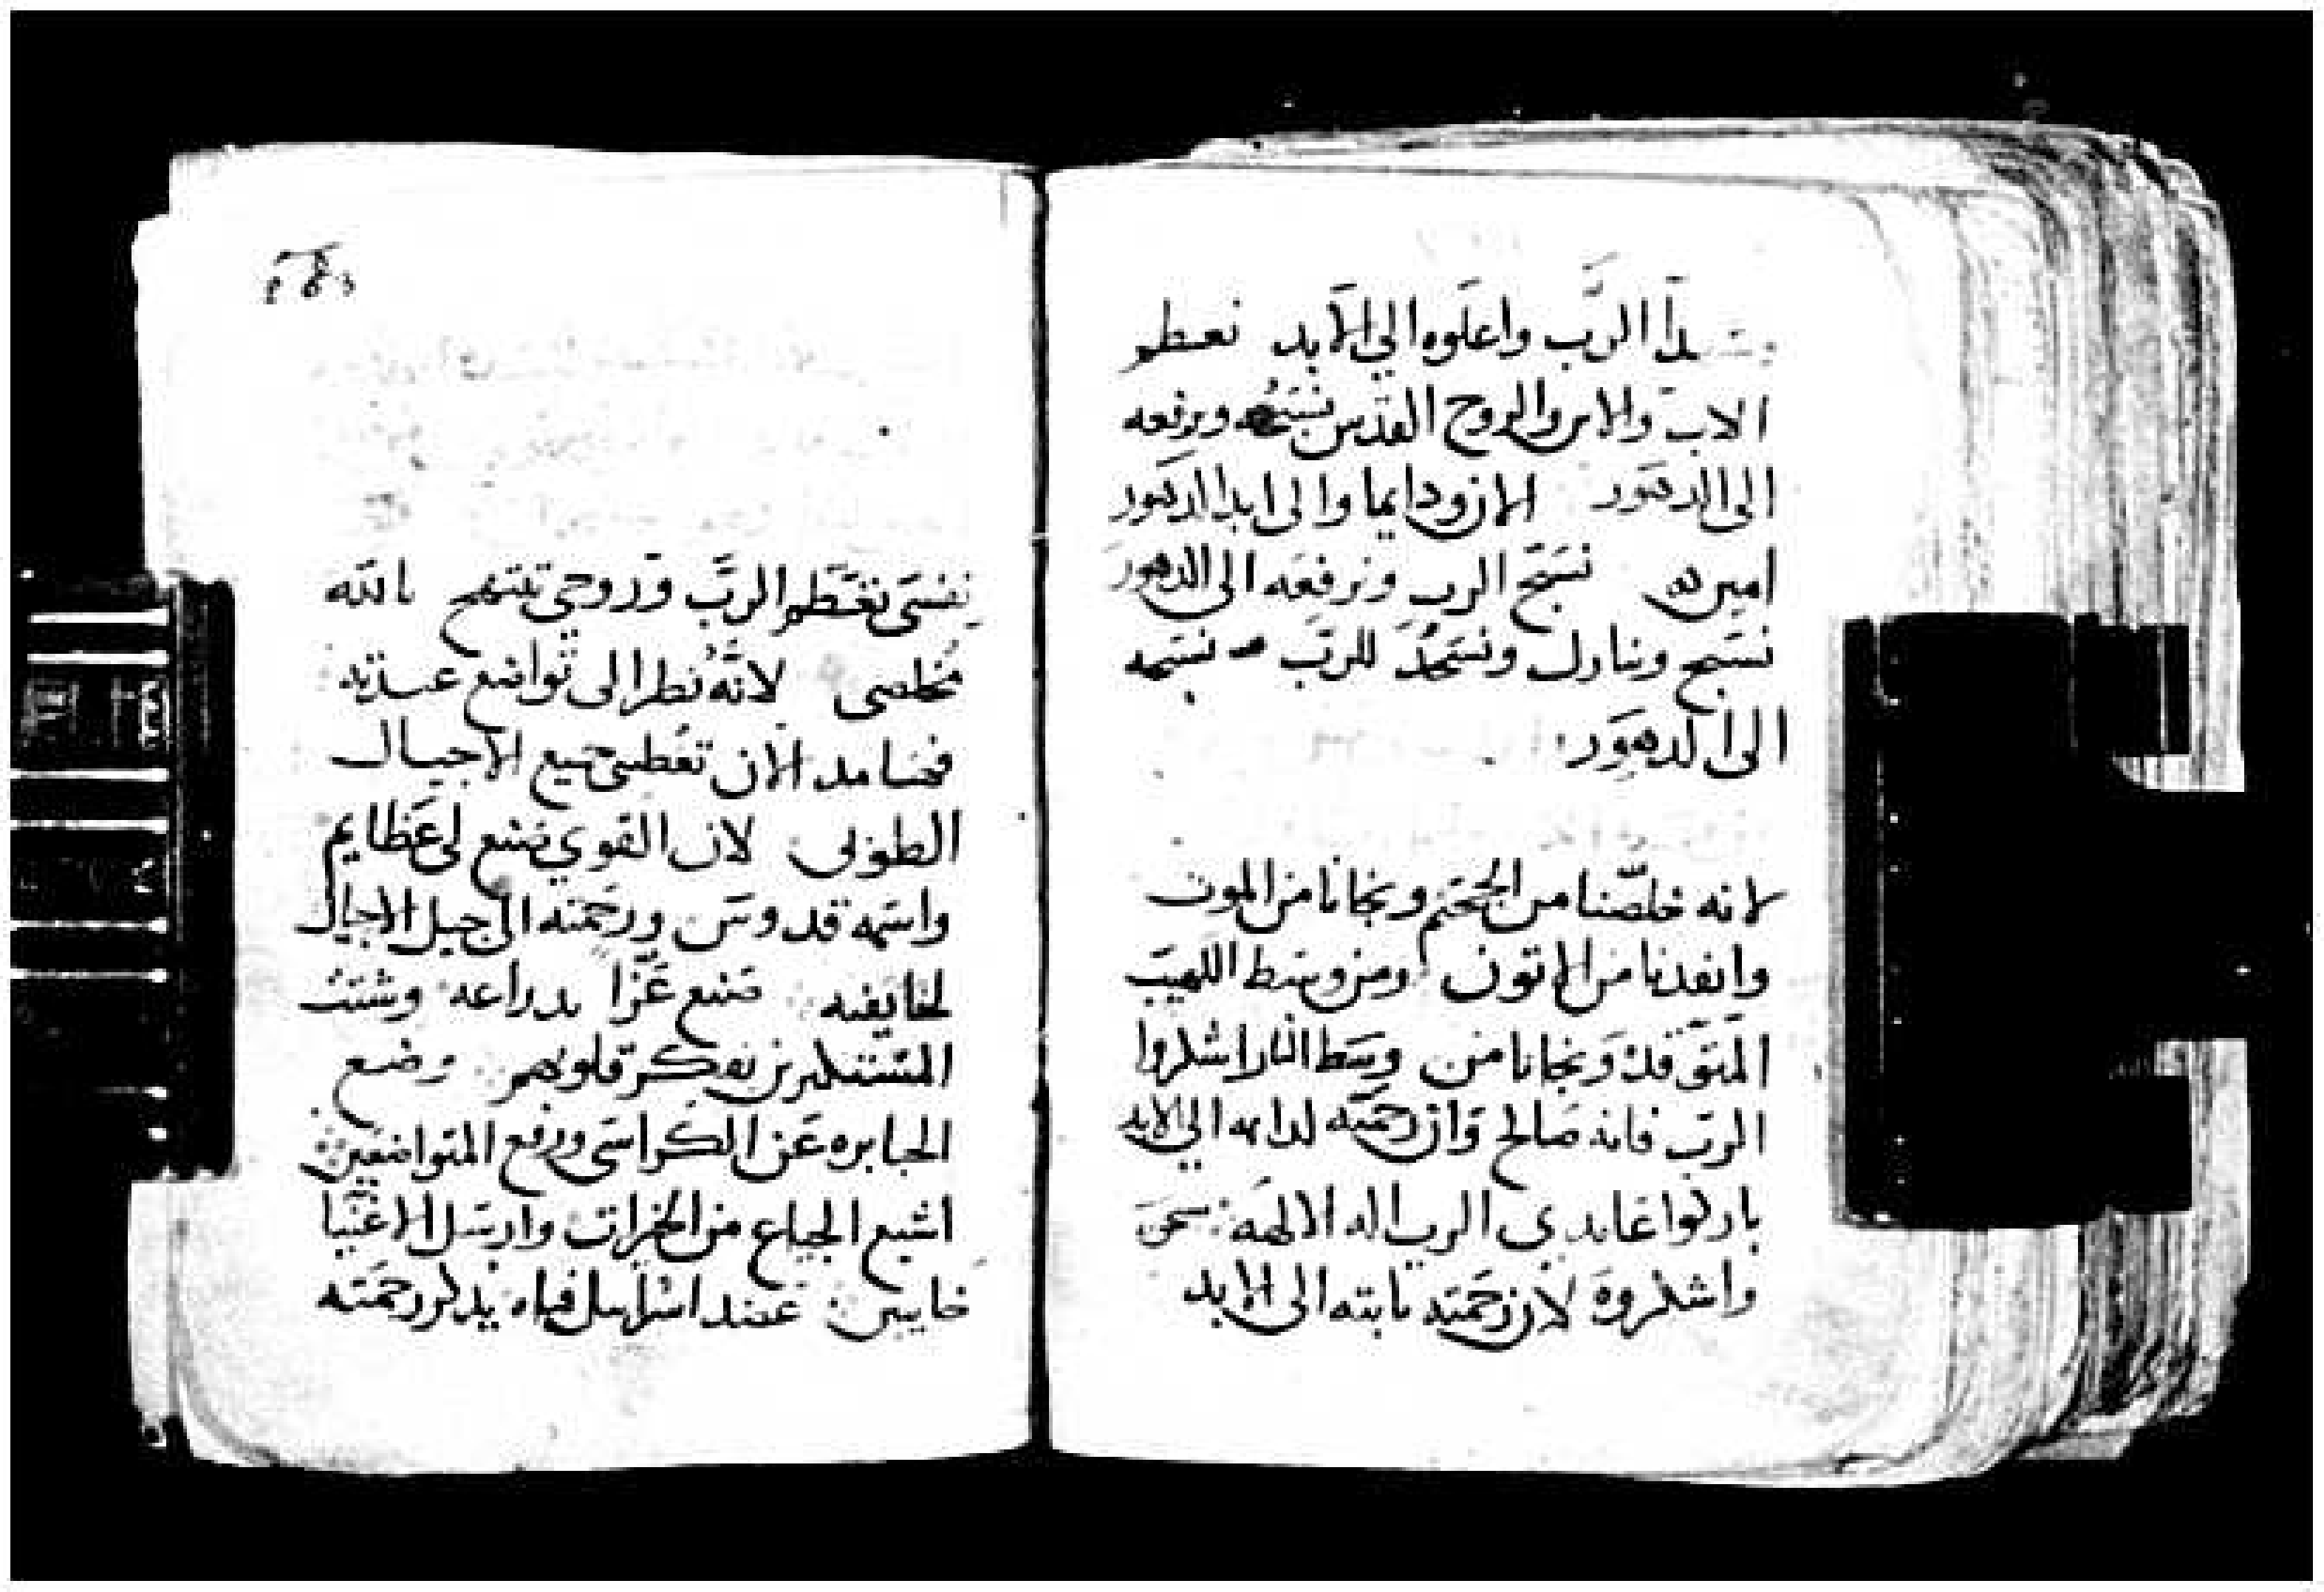 الرب واعلوه الى الابد نعظم
الاب والابن والروح القدس نسبحه ونرفعه
الى الدهور الان ودايما والى ابد الدهور
امين نسبح الرب ونرفعه الى الدهور
نسبح ونبارك ونسجد للرب نسبحه
الى الدهور
لانه خلصنا من الجحيم ونجانا من الموت
وانقدنا من الاتون ومن وسط اللهيب
المتوقد ونجانا من وسط النار اشكروا
الرب فانه صالح وان رحمته الى الابد
باركوا عابدي الرب اله الالهه
واشكروه لان رحمته ثابته الى الابد
نفسي تعظم الرب وروحي تبتهج بالله
مخلصي لانه نظر الى تواضع عبدته
الان تعطيني جميع الاجيال
الطوبى لان القوي صنع لي عظايم
واسمه قدوس ورحمته الى جيل الاجيال
لخايفيه صنع عزا بدراعه وشتت
المستكبرين بفكر قلوبهم وضع
الجبابره عن الكراسي ورفع المتواضعين
اشبع الجياع من الخيرات وارسل الاغنيا
خايبين عضد اسراييل فتاه يدكر رحمته